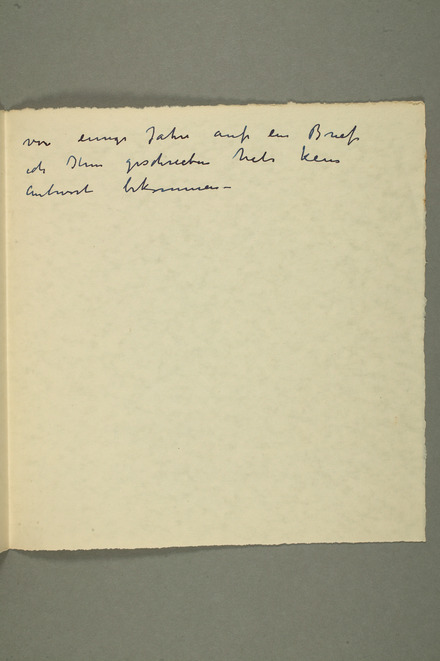 vor einige Jahre auf ein Brief
ich Ihm geschrieben hab kein
Antwort bekommen –